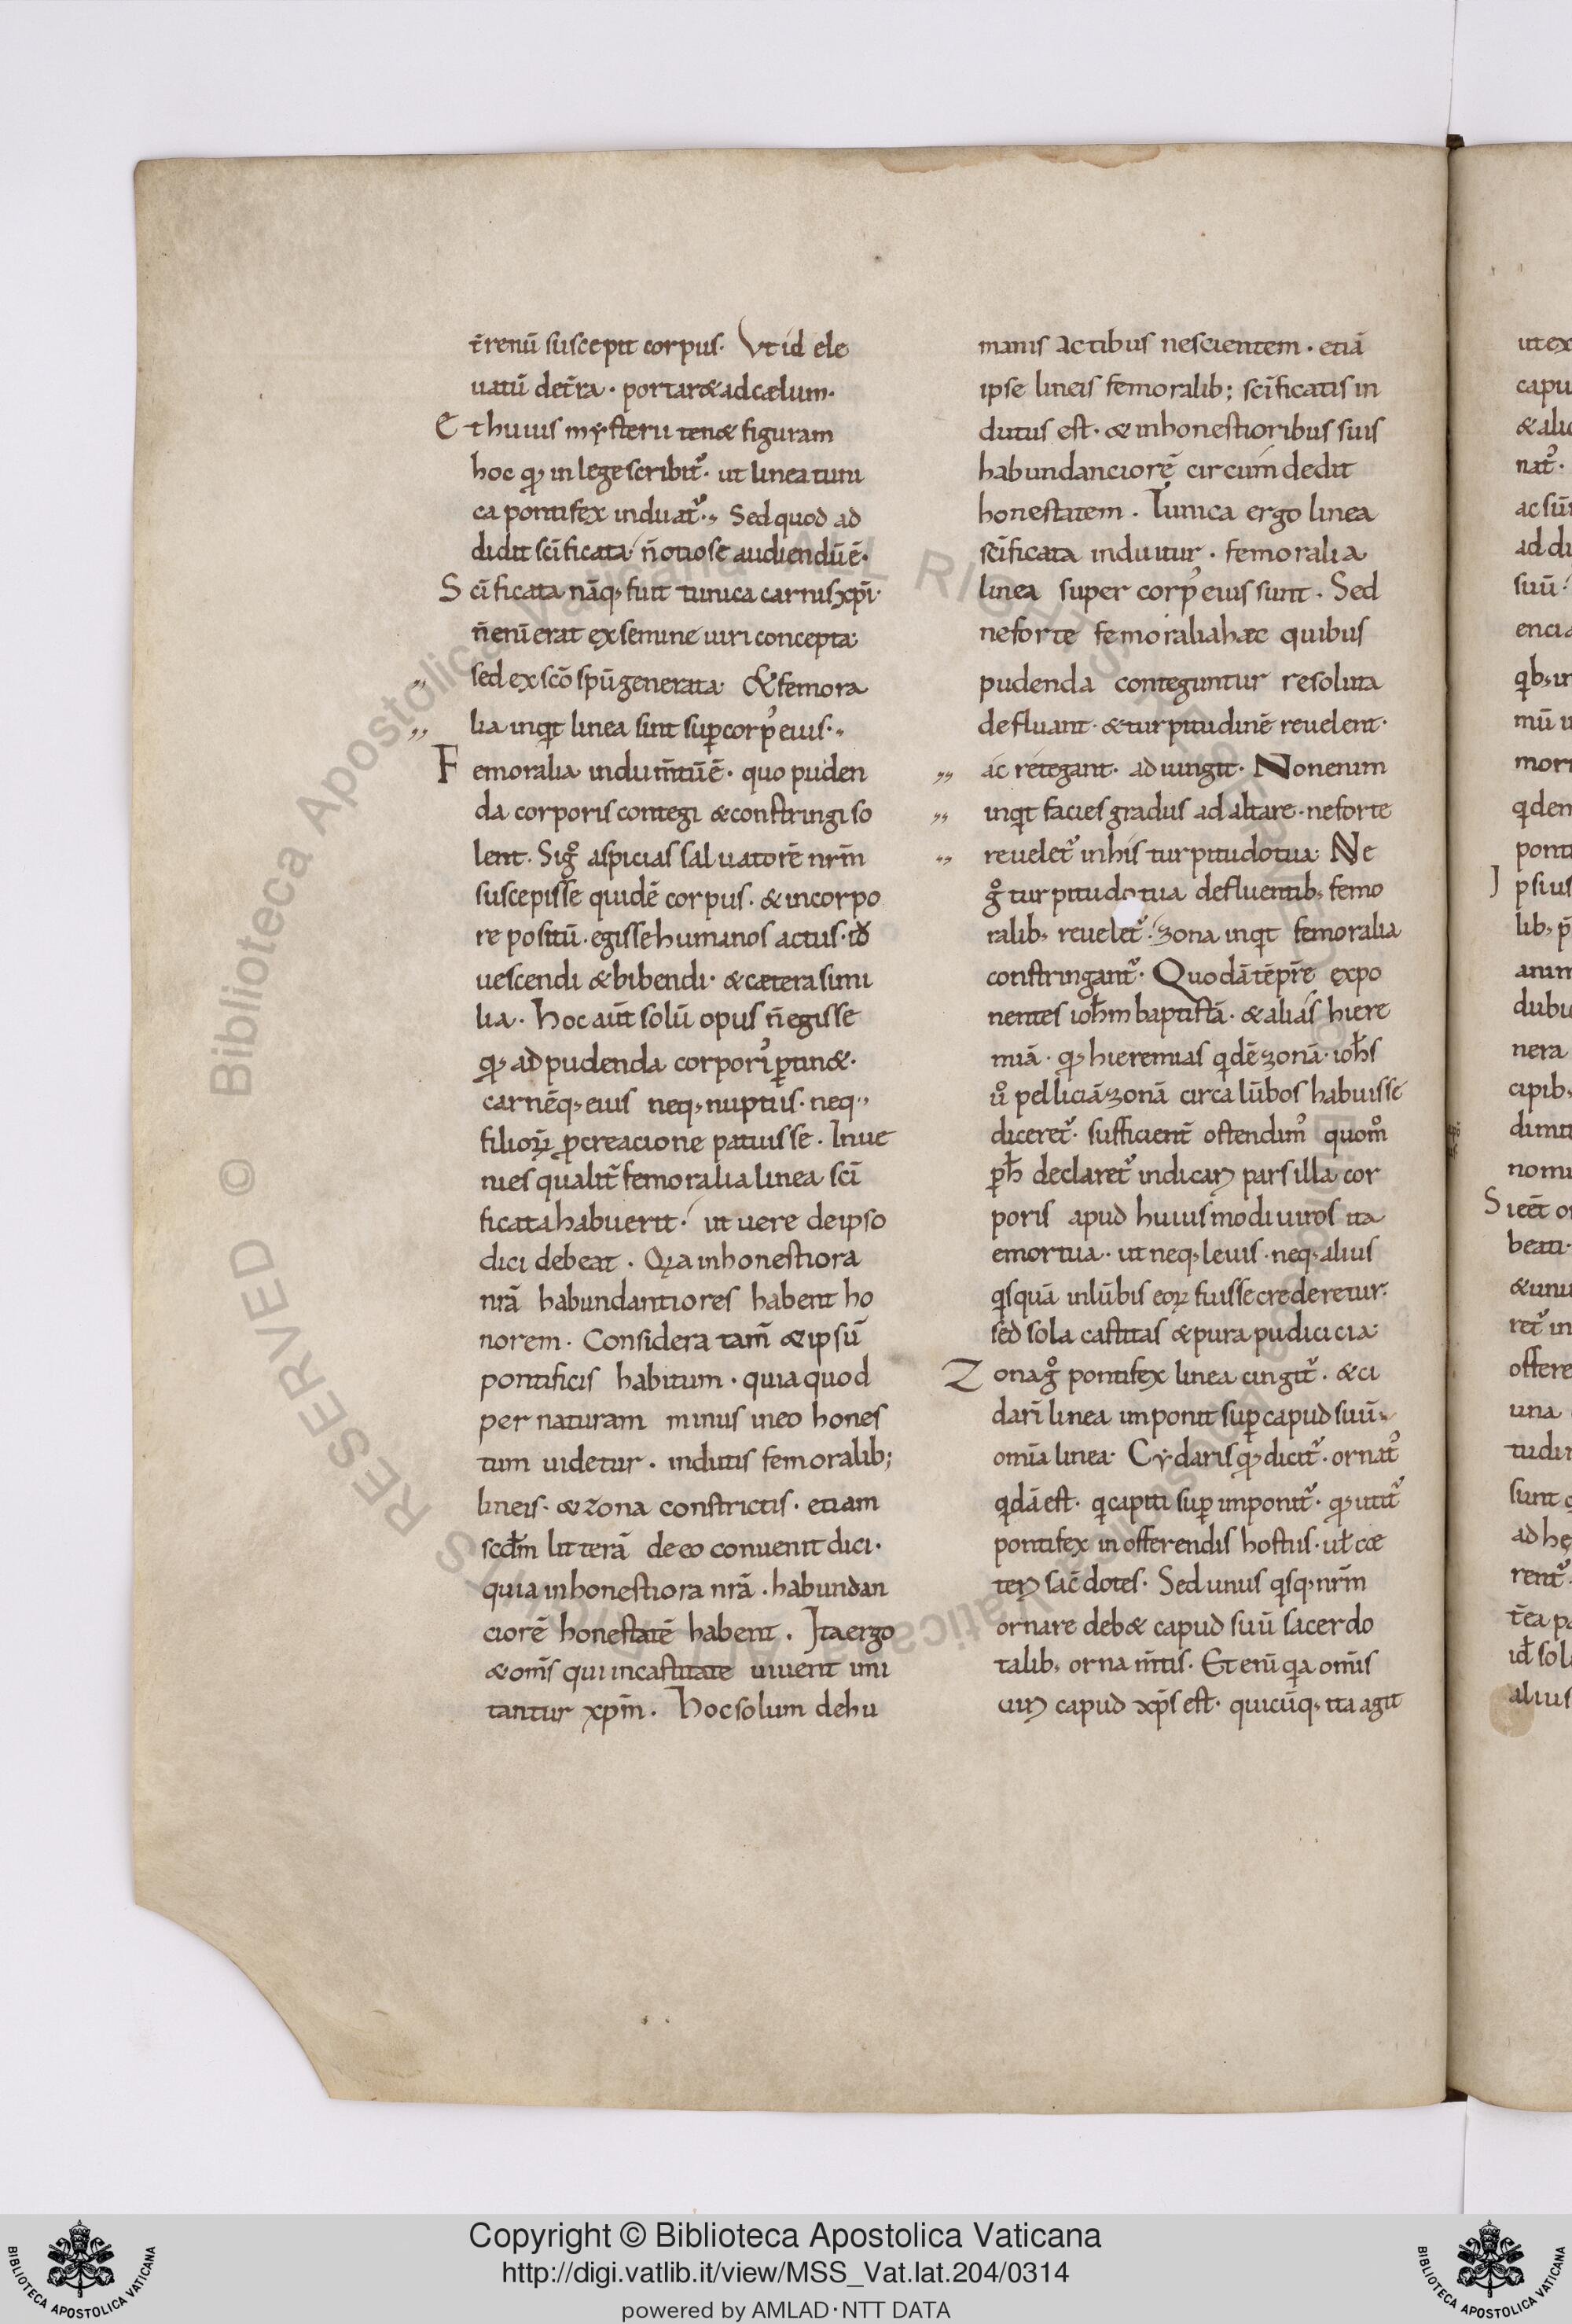 t̄renū suscepit corpus. Vt id ele
uatū det̄ra · portar& ad cælum.
Et huius mysterii ten& figuram
hoc q̇ in lege scribit̉. ut linea tuni
ca pontifex induat̉. Sed quod ad
didit scīficata n̄ otiose audiendū ē.
Scīficata nāq; fuit tunica carnis xp̄i.
n̄ enī erat ex semine uiri concepta
sed ex scō spū generata. & femora
lia inqt linea sint sup corp̉ eius.
Femoralia indum̄tū ē. quo puden
da corporis contegi & constringi so
lent. Si g̊ aspicias saluatorē nr̄m
suscepisse quidē corpus. & in corpo
re positū. egisse humanos actus. id
uescendi & bibendi. & cætera simi
lia. hoc aūt solū opus n̄ egisse
q ad pudenda corporis ptin&.
carnēq; eius neq; nuptiis. neq;
filioꝝ pcreacione patuisse. Inue
nies qualit̄ femoralia linea scī
ficata habuerit. ut uere de ipso
dici debeat. Qia inhonestiora
nrā habundantiores habent ho
norem. Considera tam̄ & ipsū
pontificis habitum. quia quod
per naturam minus in eo hones
tum uidetur. indutis femoralib;
lineis. & zona constrictis. etiam
scdm̄ litterā de eo conuenit dici.
quia inhonestiora nrā. habundan
ciorē honestatē habent. Ita ergo
& om̄s qui in castitate uiuent imi
tantur xpm̄. hoc solum de hu
manis actibus nescientem. etiā
ipse lineis femoralib; scīficatis in
dutus est. & inhonestioribus suis
habundanciorē circumdedit
honestatem. Tunica ergo linea
scīficata induitur. femoralia
linea super corp̉ eius sunt. Sed
ne forte femoralia hæc quibus
pudenda conteguntur resoluta
defluant. & turpitudinē reuelent.
ac retegant. adiungit. Non enim
inqt facies gradus ad altare. ne forte
reuelet̉ in his turpitudo tua. Ne
g̊ turpitudo tua defluentib; femo
ralib; reuelet̉. zona inqt femoralia
constringant̉. Quodā tēpr̄e expo
nentes ioh̄m baptistā. & alias hiere
miā. q hieremias qdē zonā. ioh̄s
ů pelliciā zonā circa lūbos habuisse
diceret̉. sufficient̄ ostendim̉ quom̊
ph̄ declaret̉ indicaꝝ pars illa cor
poris apud huiusmodi uiros ita
emortua. ut neq; leuis. neq; alius
qsquā in lūbis eoꝝ fuisse crederetur.
sed sola castitas & pura pudicicia.
Zona g̊ pontifex linea cingit̉. & ci
darī linea imponit sup capud suū.
omīa linea. Cydaris q dicit̉. ornat̉
qdā est. q capiti sup imponit̉. q utit̉
pontifex in offerendis hostiis. ul̄ cæ
teꝝ sac̄dotes. Sed unus qsq; nr̄m
ornare deb& capud suū sacerdo
talib; ornam̄tis. Et enī qa om̄is
uiꝝ capud xp̄s est. quicūq; ita agit
Copyright © Biblioteca Apostolica Vaticana
http://digi.vatlib.it/view/MSS_Vat.lat.204/0314
powered by AMLAD·NTT DATA